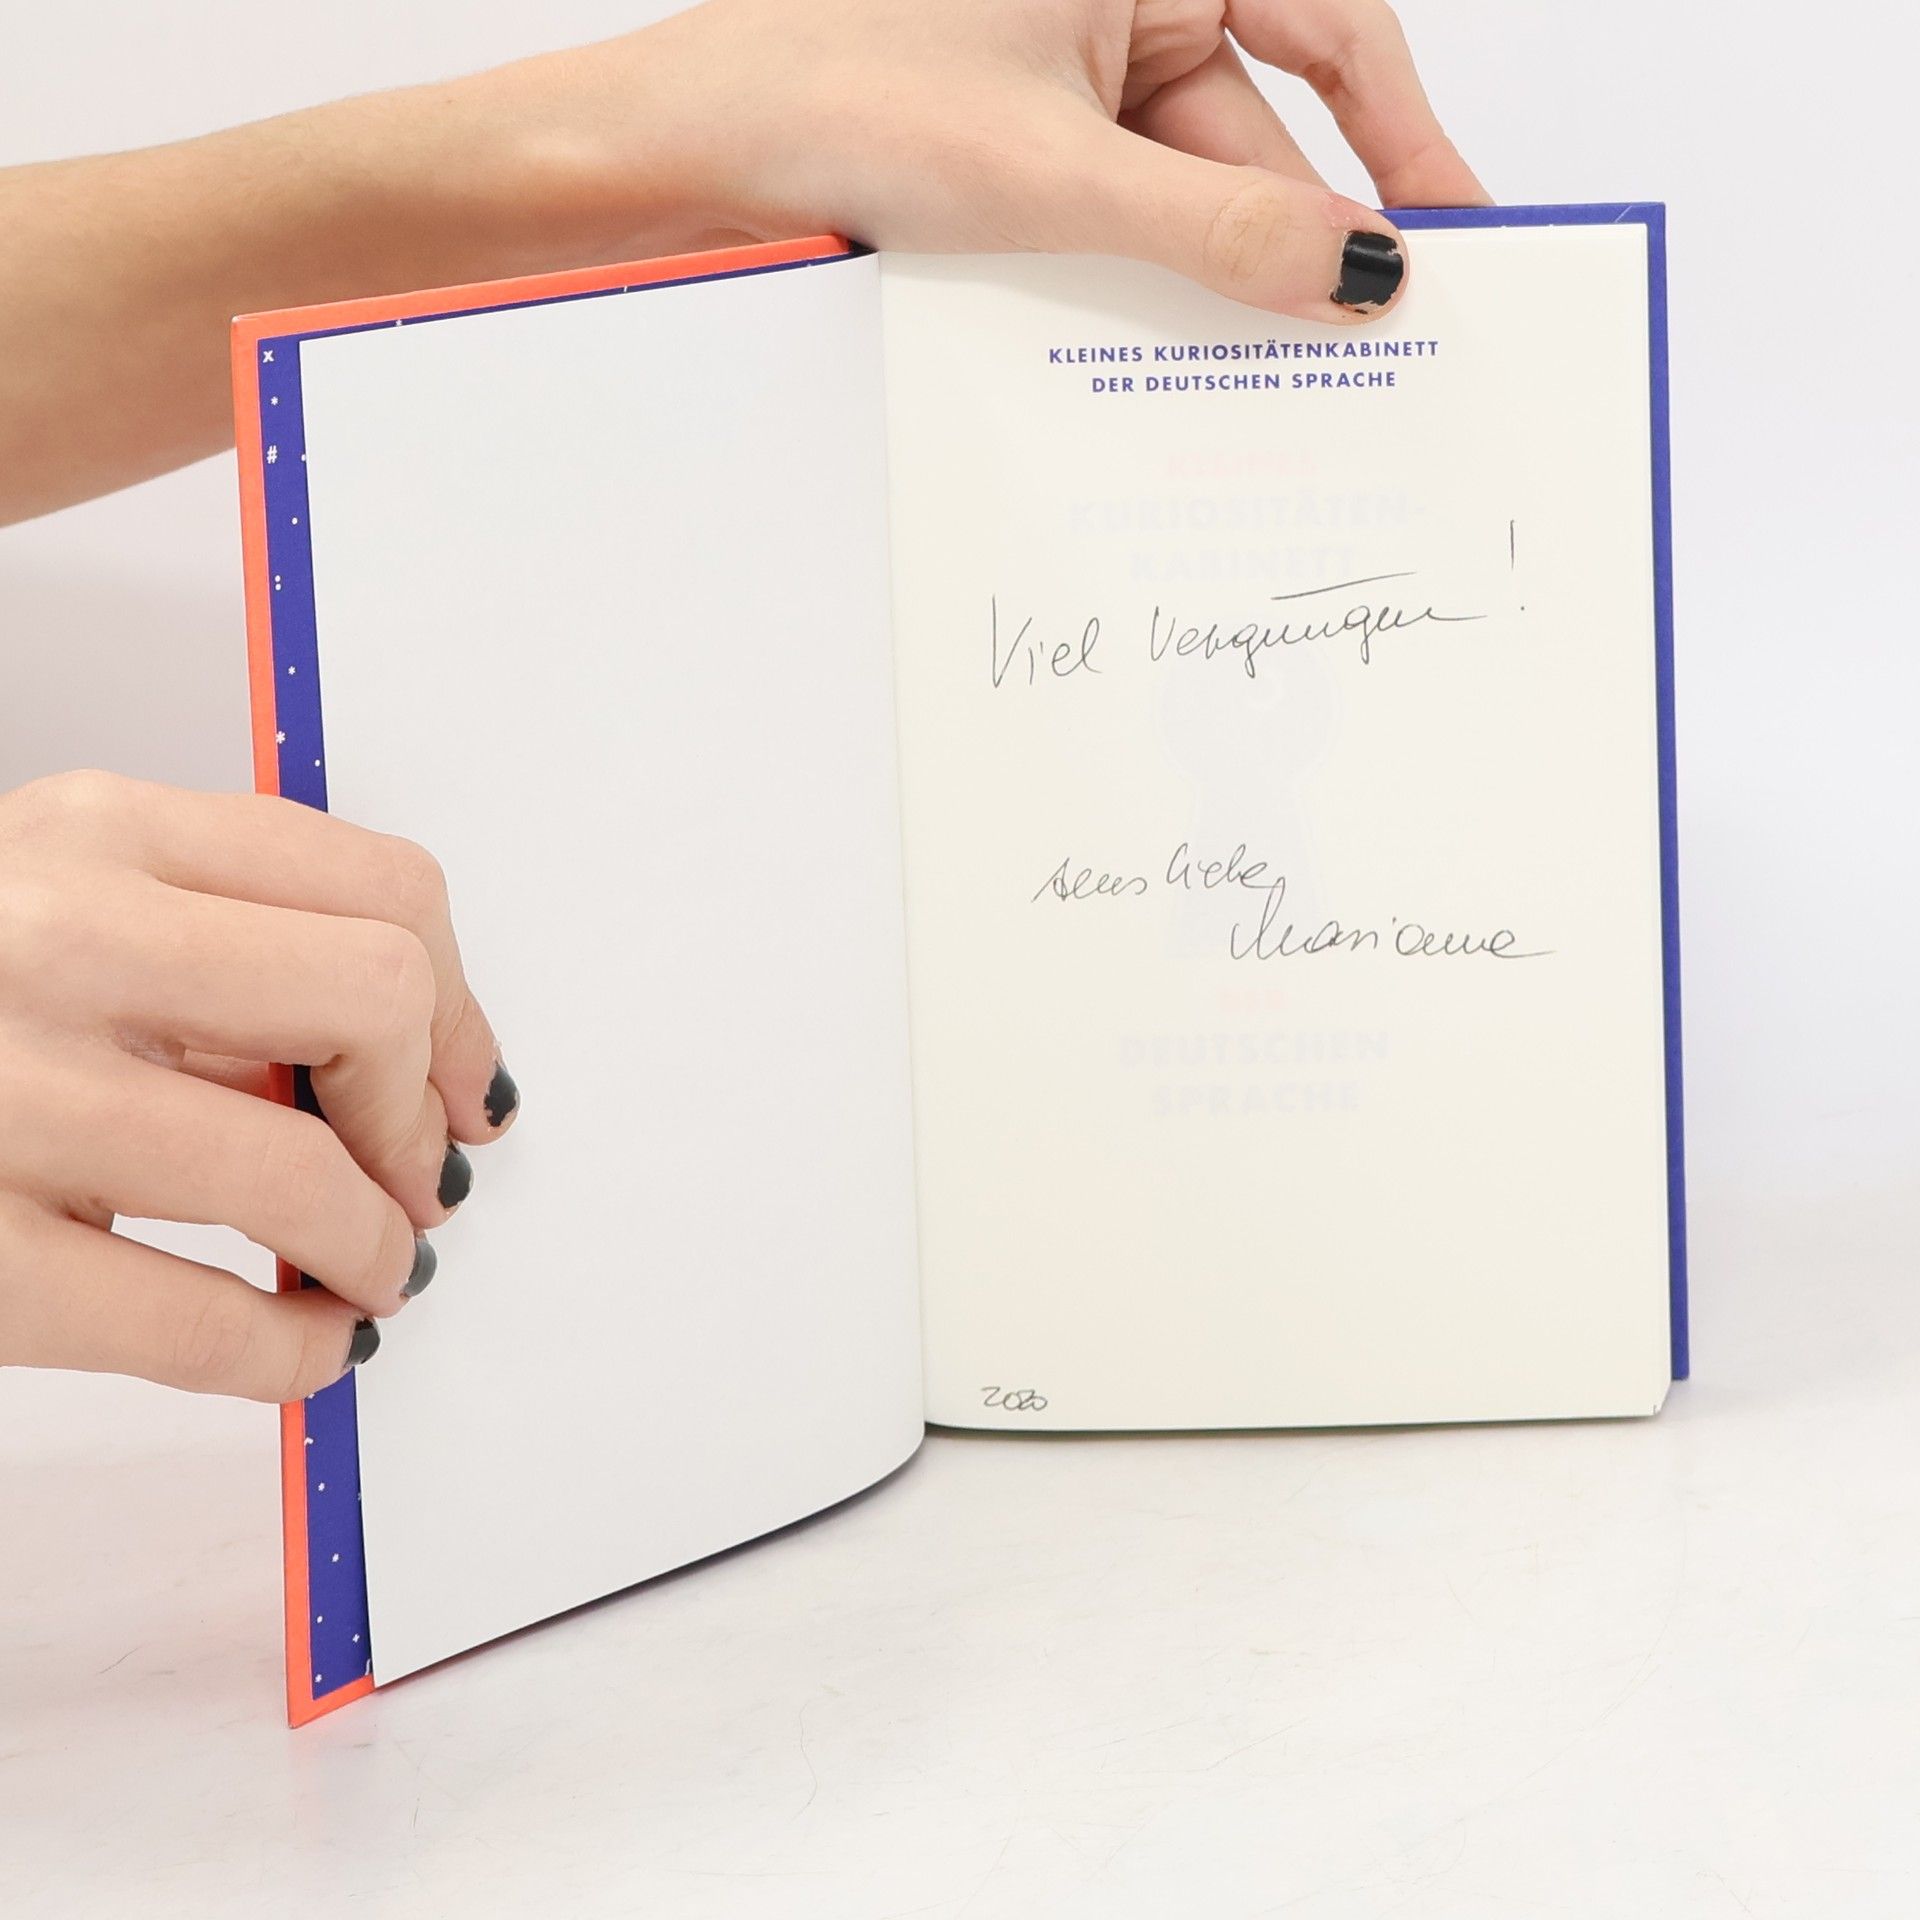 KLEINES KURIOSITÄTENKABINETT
DER DEUTSCHEN SPRACHE
KLEINES
KURIOSITÄTEN-
KABINETT
Viel Vergnügen!
Marianne
DER
DEUTSCHEN
SPRACHE
2020